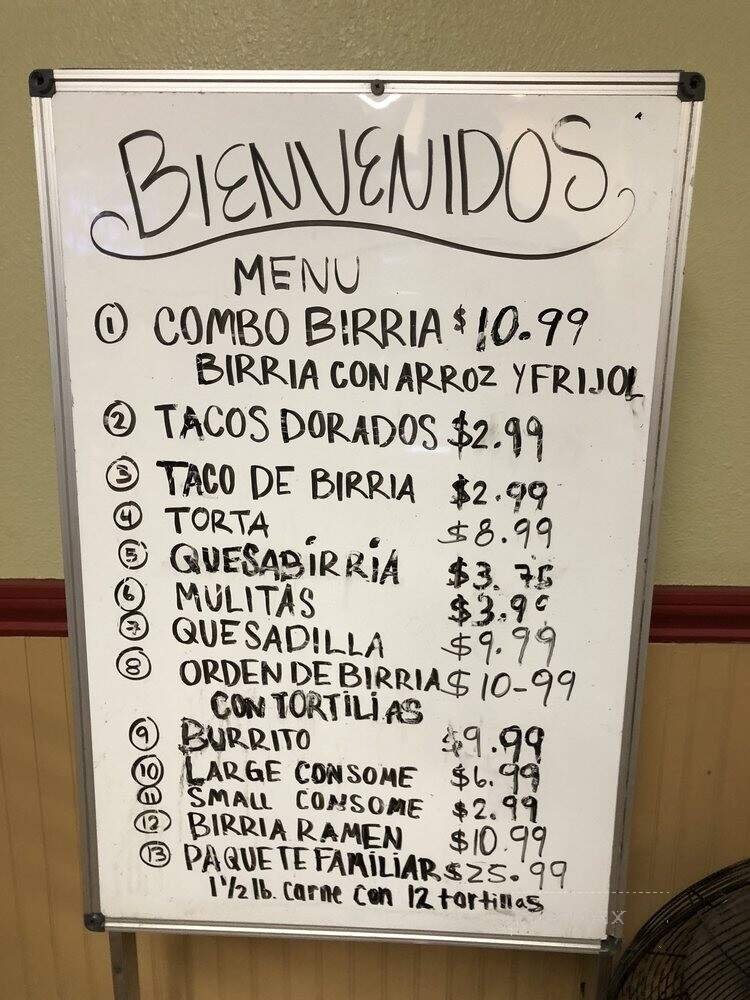 BIENVENIDOS
MENU
1 COMBO BIRRIA $10.99
BIRRIA CON ARROZ Y FRIJOL
2 TACOS DORADOS $2.99
3 TACO DE BIRRIA $2.99
4 TORTA $8.99
5 QUESABIRRIA $3.75
6 MULITAS $3.99
7 QUESADILLA $9.99
8 ORDEN DE BIRRIA $10-99
CON TORTILIAS
9 BURRITO $9.99
10 LARGE CONSOME $6.99
11 SMALL CONSOME $2.99
12 BIRRIA RAMEN $10.99
13 PAQUETE FAMILIAR $25.99
1 1/2 lb. carne con 12 tortillas